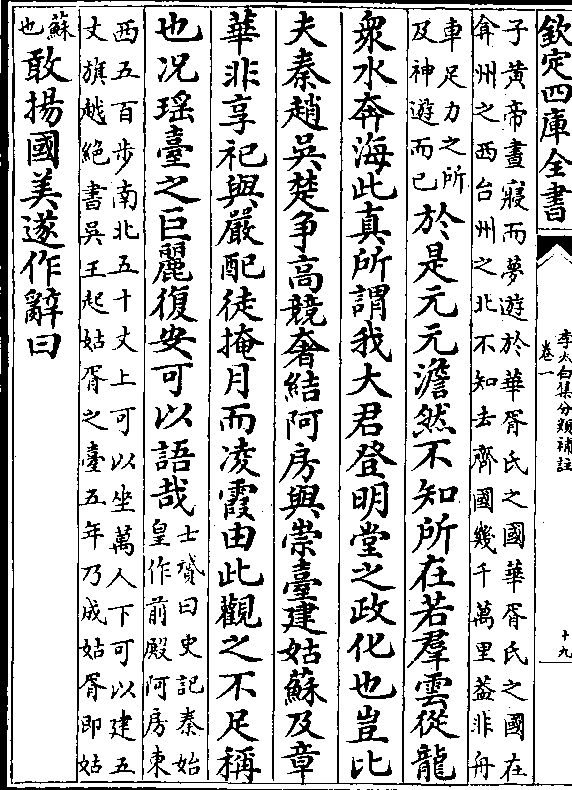 欽定四庫全書
李太白集分類補註
卷一
十九
子黄帝晝寢而夢遊於華胥氏之國華胥氏之國在
弇州之西台州之北不知去齊國幾千萬里葢非舟
車足力之所
及神遊而已
於是元元澹然不知所在若羣雲從龍
衆水奔海此真所謂我大君登明堂之政化也豈比
夫秦趙吳楚争高競奢結阿房與崇臺建姑蘇及章
華非享祀與嚴配徒掩月而凌霞由此觀之不足稱
也况瑶臺之巨麗復安可以語哉
士贇曰史記秦始
皇作前殿阿房東
西五百步南北五十丈上可以坐萬人下可以建五
丈旗越絶書吳王起姑胥之臺五年乃成姑胥即姑
蘇
也
敢揚國美遂作辭曰